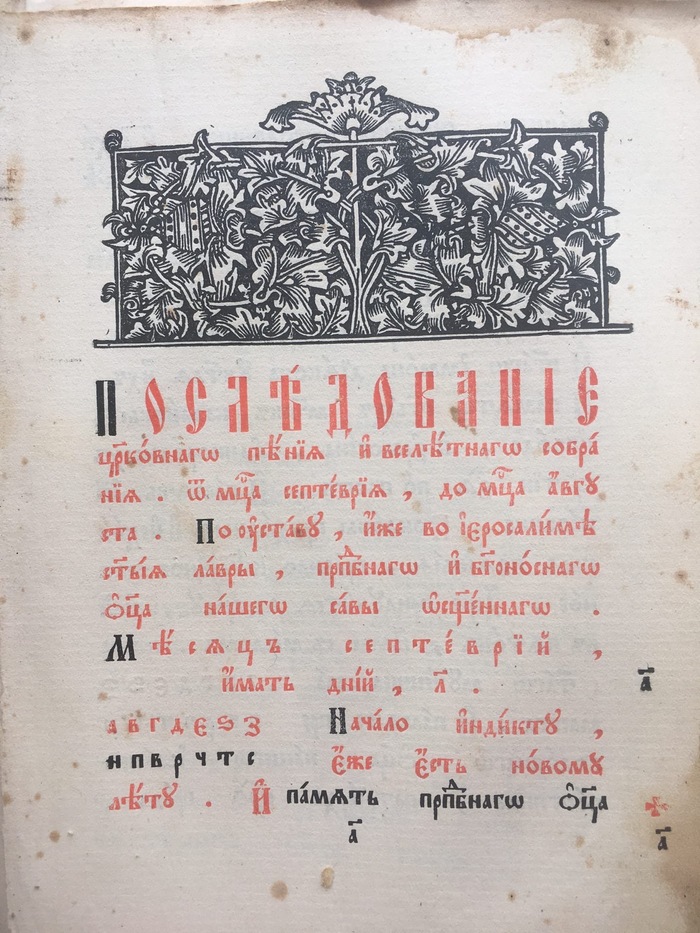 Послѣ́дованїе
цр҃ко́внагѡ пѣ́нїѧ и҆ вселѣ́тнагѡ собра́
нїѧ . ѿ мц҃а септе́врїѧ , до мц҃а а҆́вгꙋ
ста . По ᲂу҆ста́вꙋ , и҆́же во і҆еросали́мѣ
ст҃ы́ѧ ла́вры , прпⷣбнагѡ и҆ бг҃оно́снагѡ
ѻ҆ц҃а̀ на́шегѡ са́вы ѡ҆сщ҃е́ннагѡ .
Мѣ́сѧцъ септе́врїй ,
и҆́мать дні́й , л҃ . а҃
а в г д є ѕ з Нача́ло и҆нди́ктꙋ ,
н п в р ч т с є҆́же є҆́сть но́вомꙋ
лѣ́тꙋ . И҆ па́мѧть прпⷣбнагѡ ѻ҆ц҃а̀
а҃ а҃